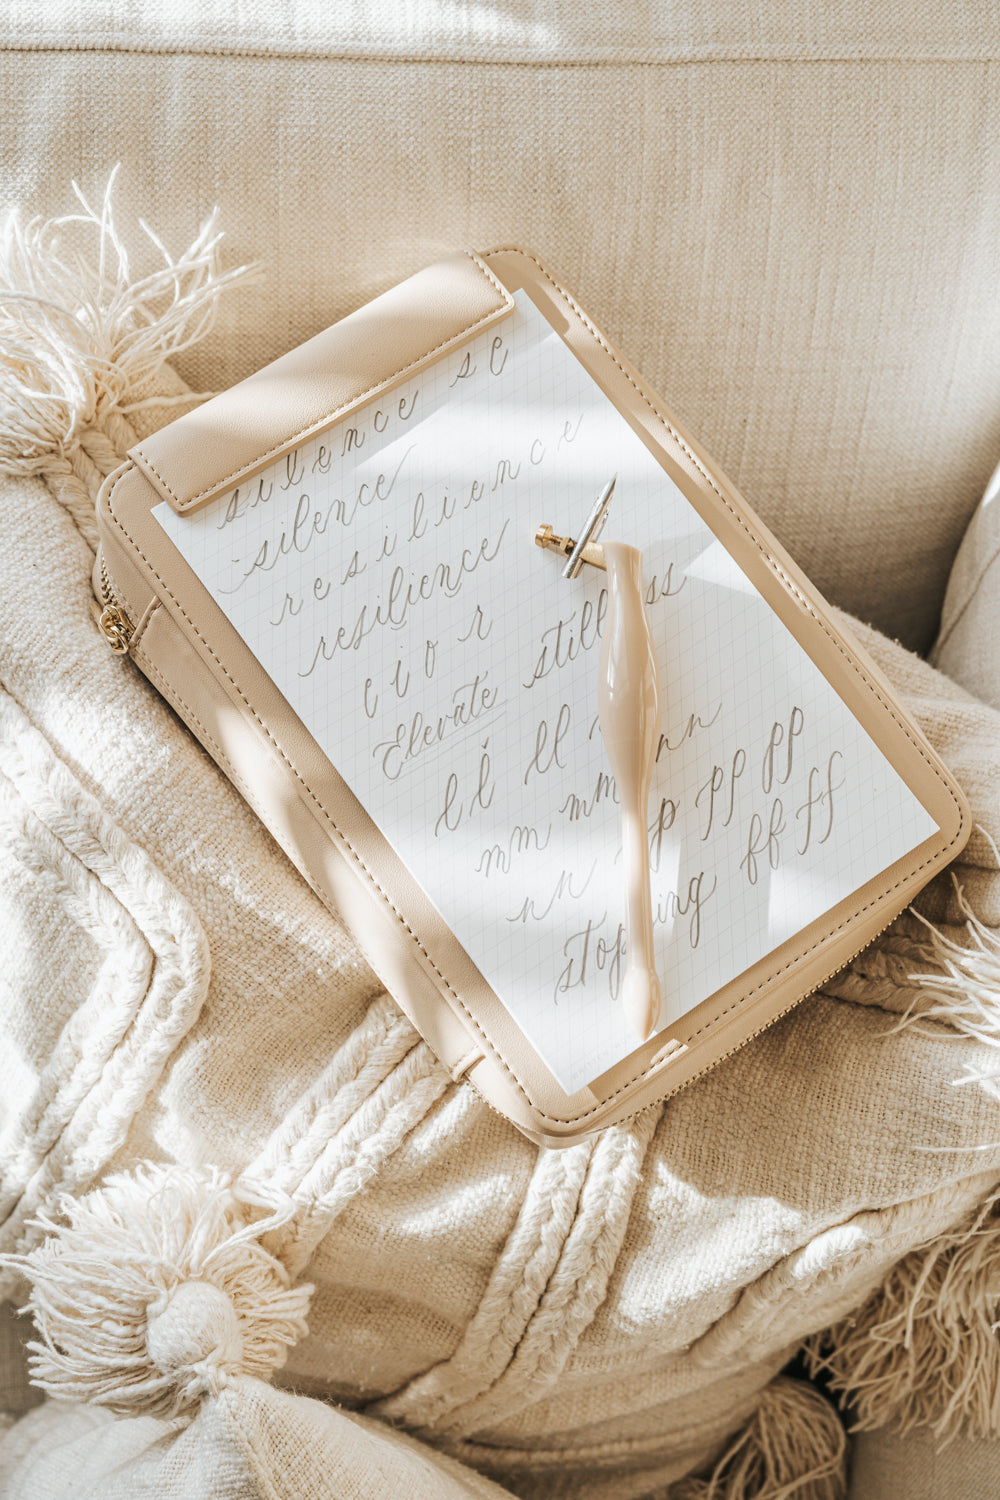 s e
s i l e n c e
silence
r e s i l i e n c e
resilience
e i o r
Elevate still ss
l l ll
m mm m nn
nn p pp pp
ff ff